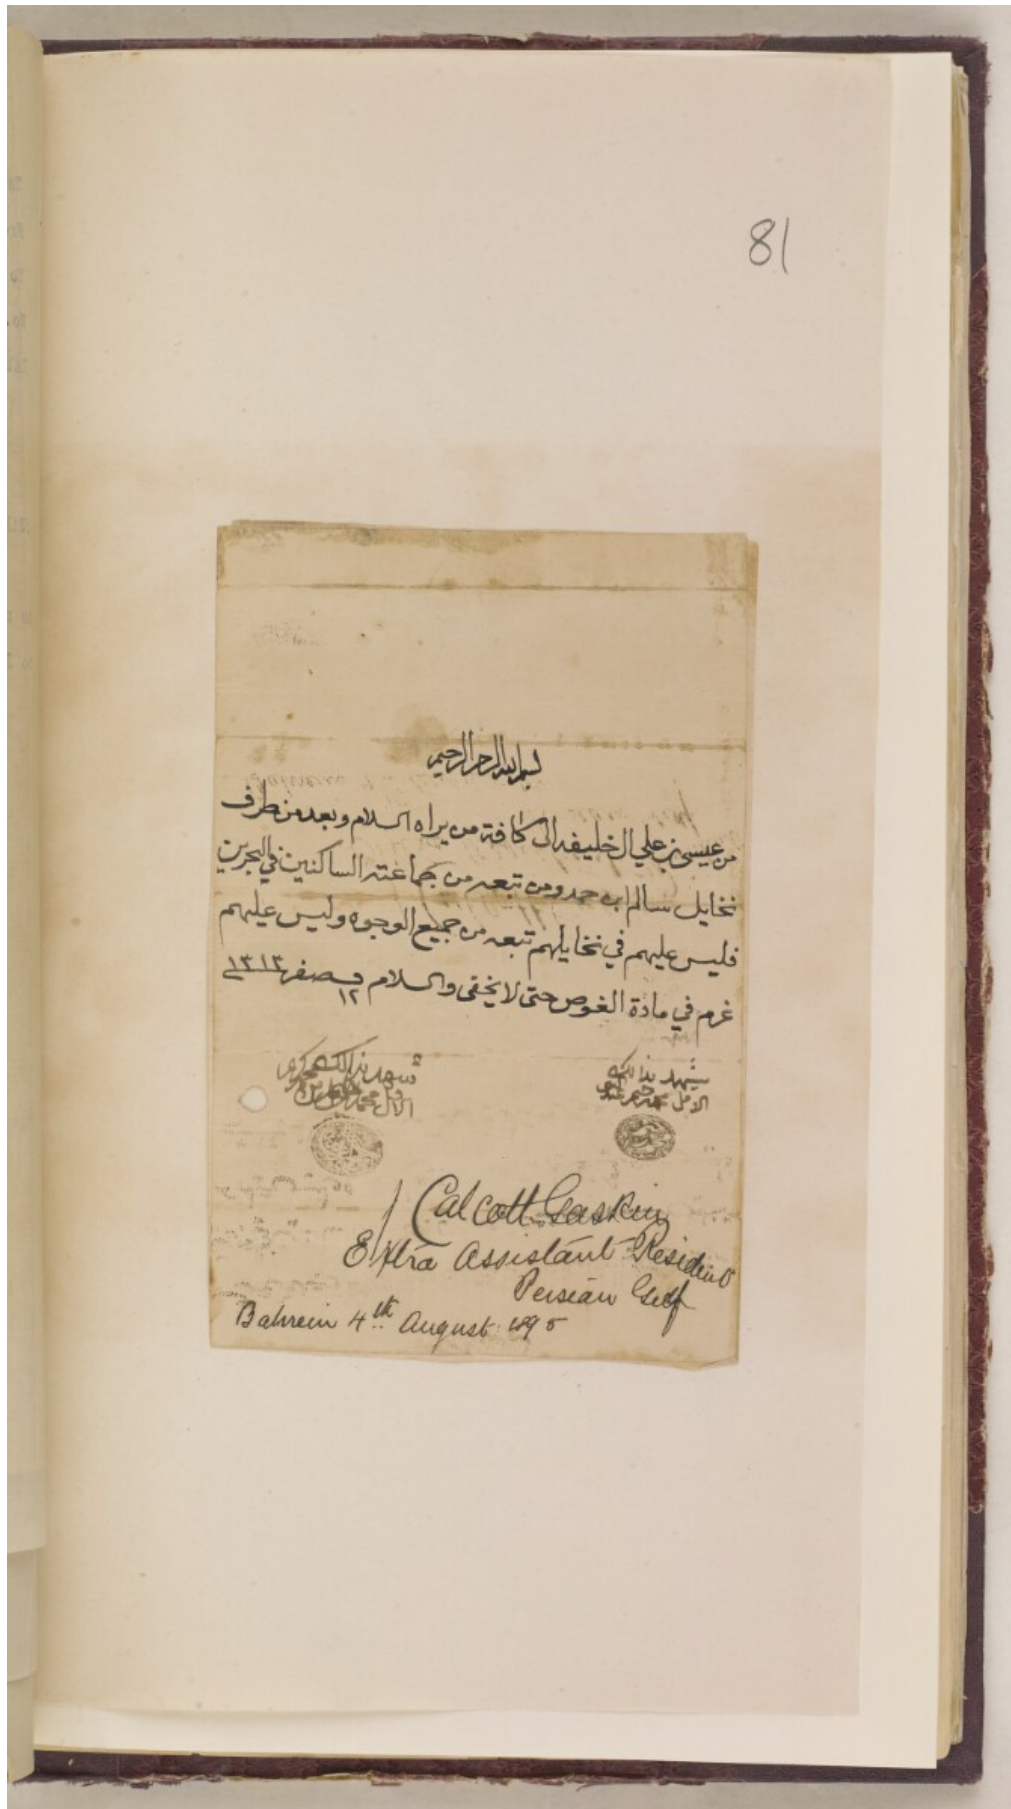 81
بسم الله الرحمن الرحيم
من عيسى بن علي ال خليفه الى كافة من يراه السلام وبعد من طرف
نخايل سالم ابن حمد ومن تبعه من جماعته الساكنين في البحرين
فليس عليهم في نخايلهم تبعه من جميع الوجوه وليس عليهم
غرم في مادة الغوص حتى لا يخفى والسلام ١٢ صفر ١٣١٣
يشهد بذالك
شهد بذالك
الاقل محمد
Calcott Gaskin
Extra Assistant Resident
Persian Gulf
Bahrein 4th August 1895